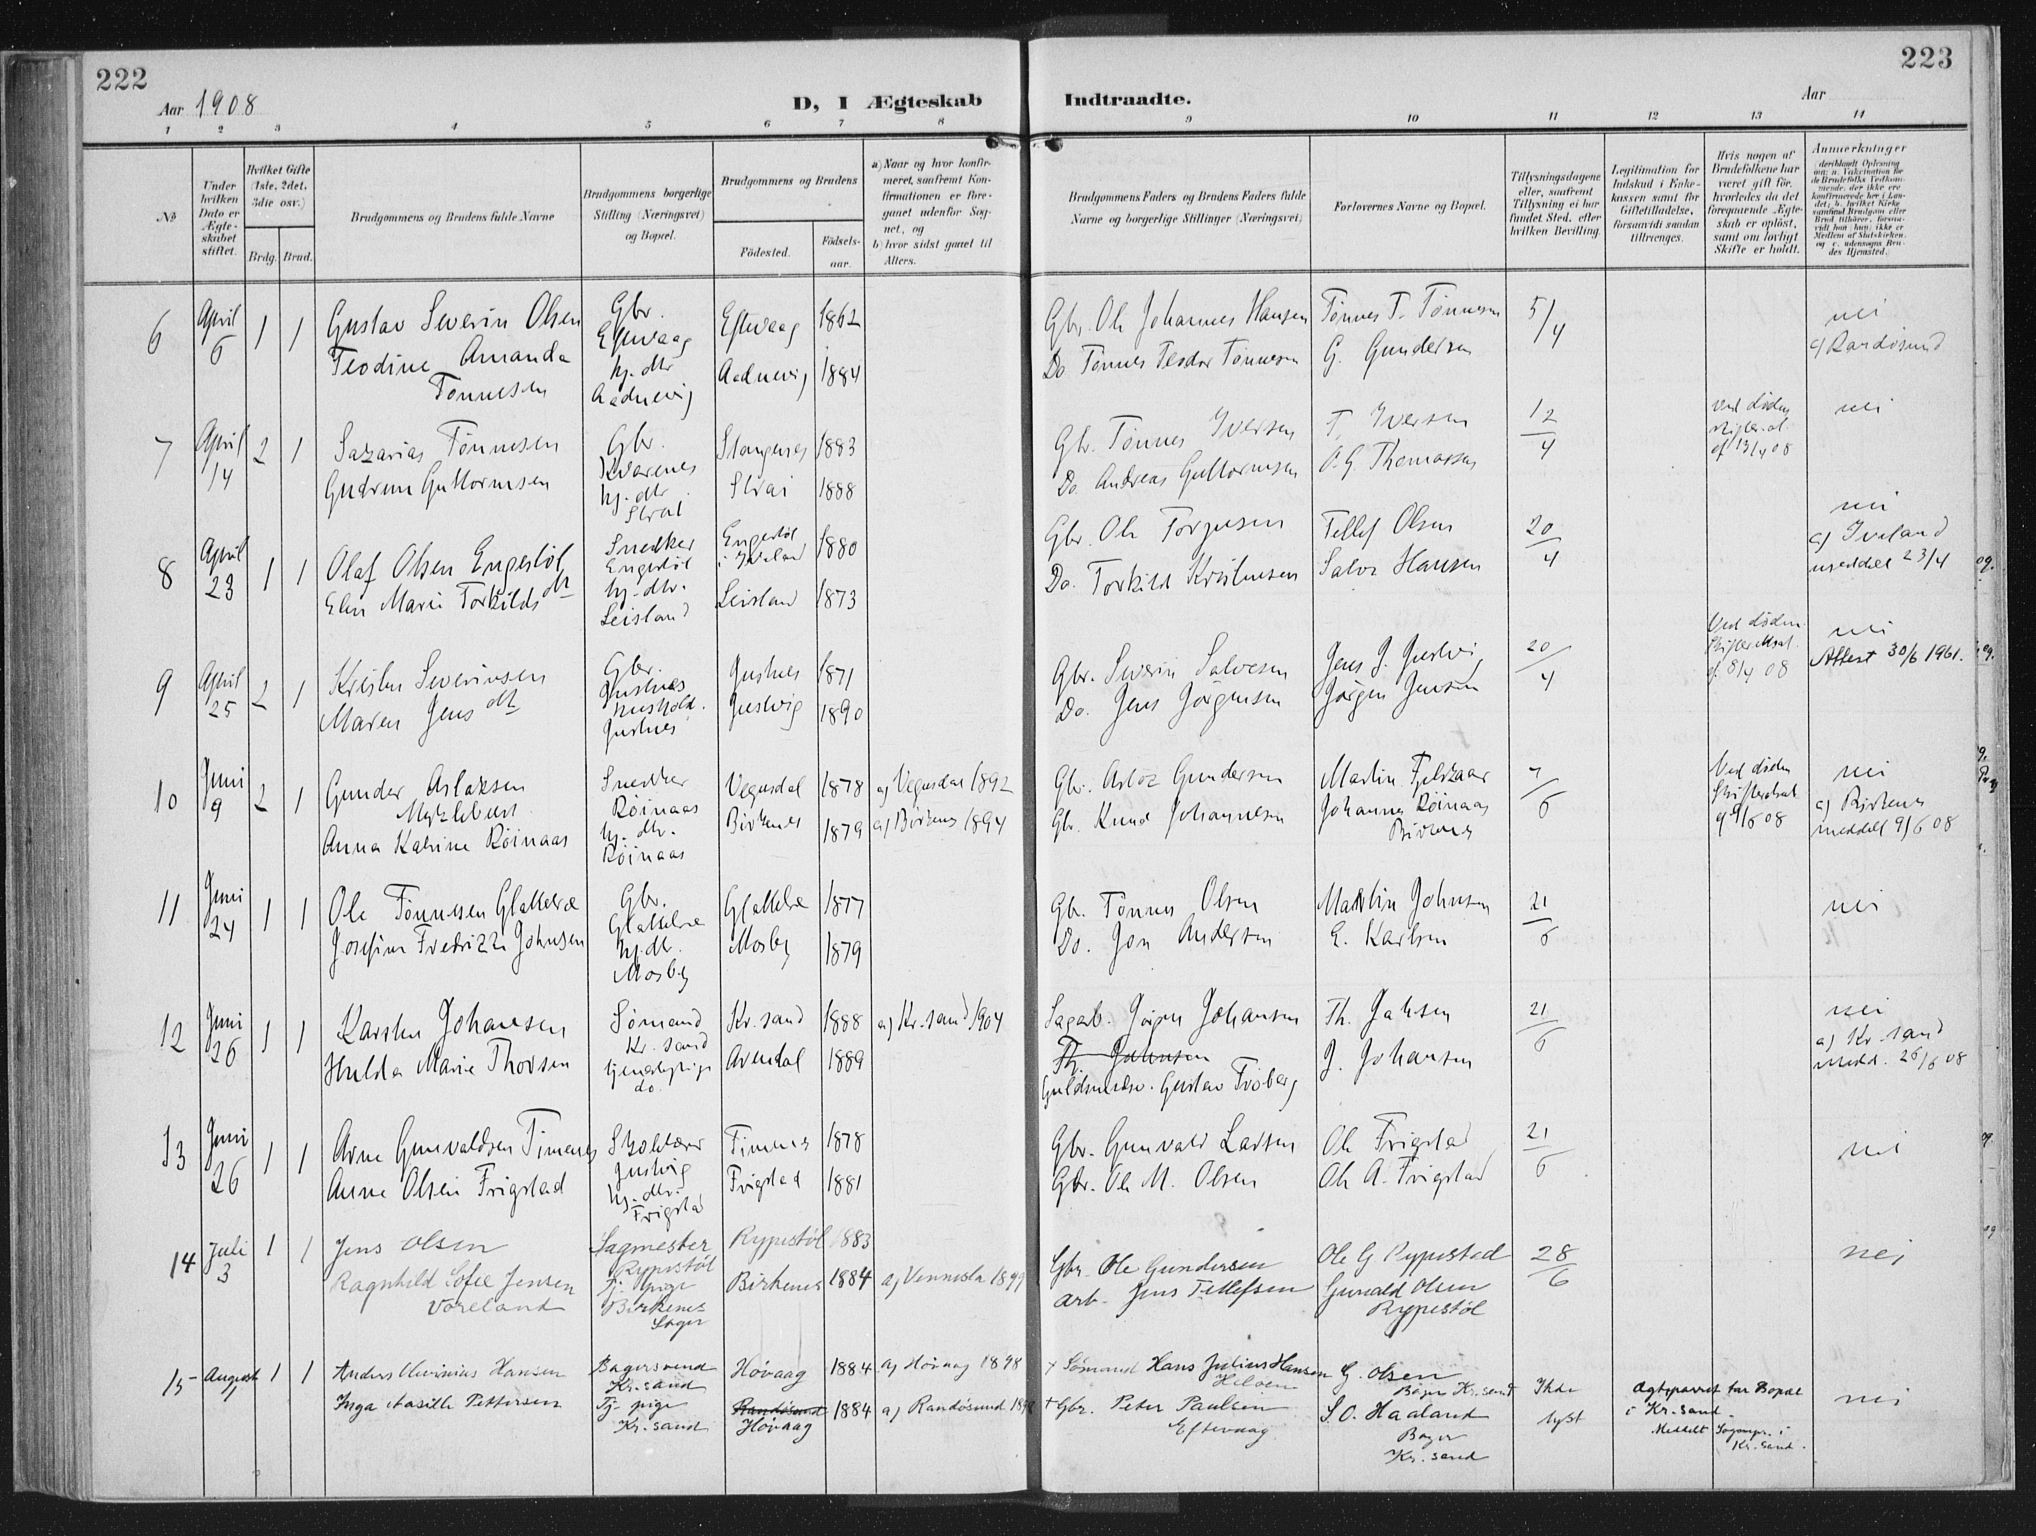 222
Aar 1908
D, I Ægteskab
Indtraadte.
223
Aar
1 2 3 4 5 6 7 8 9 10 11 12 13 14
№
Under hvilken Dato er Ægteskabet stiftet.
Hvilket Gifte (1ste, 2det, 3die osv.)
Brdg. Brud.
Brudgommens og Brudens fulde Navne
Brudgommens borgerlige Stilling (Næringsvei) og Bopæl.
Brudgommens og Brudens
Fødested.
Fødselsaar.
a) Naar og hvor konfirmeret, saafremt Konfirmationen er foregaaet udenfor Sognet, og
b) hvor sidst gaaet til Alters.
Brudgommens Faders og Brudens Faders fulde Navne og borgerlige Stillinger (Næringsvei)
Forlovernes Navne og Bopæl.
Tillysningsdagene eller, saafremt Tillysning ei har fundet Sted, efter hvilken Bevilling.
Legitimation for Indskud i Enkekassen samt for Giftetilladelse, forsaavidt saadan tiltrænges.
Hvis nogen af Brudefolkene har været gift før, hvorledes da det foregaaende Ægteskab er opløst, samt om lovligt Skifte er holdt.
Anmerkninger
6 April 6 1 1
Gustav Severin Olsen
Teodine Amanda Tønnesen
Gbr. Eftevaag
hj. dtr Aadnevig
Eftevaag 1862
Aadnevig 1884
Gbr. Ole Johannes Hansen
Do Tønnes Teodor Tønnesen
Tønnes T. Tønnesen
G. Gundersen
5/4
nei
a) Randøsund
7 April 14 2 1
Sazarias Tønnesen
Gudrun Guttormsen
Gbr. Kvarenes
hj. dtr. Strai
Stangenes 1883
Strai 1888
Gbr. Tønnes Iversen
Do. Andreas Guttormsen
T. Iversen
O. G. Thomassen
12/4
ved døden
af 13/4 08
nei
8 April 23 1 1
Olaf Olsen Engestøl
Elen Marie Torkildsdtr
Snedker Engestøl
hj. dtr. Leisland
Engestøl i Iveland 1880
Leisland 1873
Gbr. Ole Torjusen
Do. Torkild Kristensen
Tellef Olsen
Salve Hansen
20/4
nei
a) Iveland
meddelt 23/4
9 April 25 2 1
Kristen Severinsen
Maren Jensdtr
Gbr. Justnes
hushold. Justnes
Justnes 1871
Justvig 1890
Gbr. Severin Salvesen
Do. Jens Jørgensen
Jens J. Justvi
Jørgen Jensen
20/4
Ved døden.
Skifteattest
af 8/4 08
nei
Attest 30/6 1961.
10 Juni 9 2 1
Gunder Aslaksen Mykleburt
Anna Katrine Røinaas
Snedker Røinaas
hj. dtr. Røinaas
Vegusdal 1878 a) Vegusdal 1892
Birkenes 1879 a) Birkenes 1894
Gbr. Aslak Gundersen
Gbr. Knud Johannesen
Martin Fjeldsaar
Johannes Røinaas
Birkenes
7/6
Ved døden
Skifteattest
af 9/6 08
nei
a) Birkenes
meddelt 9/6 08
11 Juni 24 1 1
Ole Tønnesen Glattetre
Josefine Fredrikke Johnsen
Gbr. Glattetre
hj. dtr. Mosby
Glattetre 1877
Mosby 1879
Gbr. Tønnes Olsen
Do. Jon Andersen
Martin Johnsen
E. Karlsen
21/6
nei
12 Juni 26 1 1
Karsten Johansen
Hulda Marie Thorsen
Sømand Kr. sand
tjenestepige do.
Kr. sand 1888 a) Kr. sand 1904
Arendal 1889
Sagarb. Jørgen Johansen
Th. Jahnsen
Guldsmedsv. Gustav Froberg
Th. Jahnsen
J. Johansen
21/6
nei
a) Kr. sand
medd. 26/6 08
13 Juni 26 1 1
Arne Gunvaldsen Timenes
Anne Olsen Frigstad
Skolelærer Justvig
hj. dtr. Frigstad
Timenes 1878
Frigstad 1881
Gbr. Gunvald Larsen
Gbr. Ole M. Olsen
Ole Frigstad
Ole A. Frigstad
21/6
nei
14 Juli 3 1 1
Jens Olsen
Ragnhild Sofie Jensen Voreland
Sagmester Rypestøl
Tj. pige Birkenes Sogn
Rypestøl 1883
Birkenes 1884 a) Vennesla 1899
Gbr. Ole Gundersen
Arb. Jens Tellefsen
Ole G Rypestad
Gunvald Olsen
Rypestøl
28/6
nei
15 August 1 1 1
Anders Severinius Hansen
Inga Aasille Pettersen
Bagersvend Kr. sand
Tj. pige Kr. sand
Høvaag 1884 a) Høvaag 1898
Randøsund
Høvaag 1884 a) Randøsund 1898
+ Sømand Hans Julius Hansen
+ Gbr. Peter Paulsen
Eftevaag
G. Olsen
Bager Kr. sand
S. O. Haaland
Bager
Kr. sand
Ikke lyst
Ægteparret tar Bopæl i Kr. sand.
Meddelt Sognepr. i Kr. sand.
nei